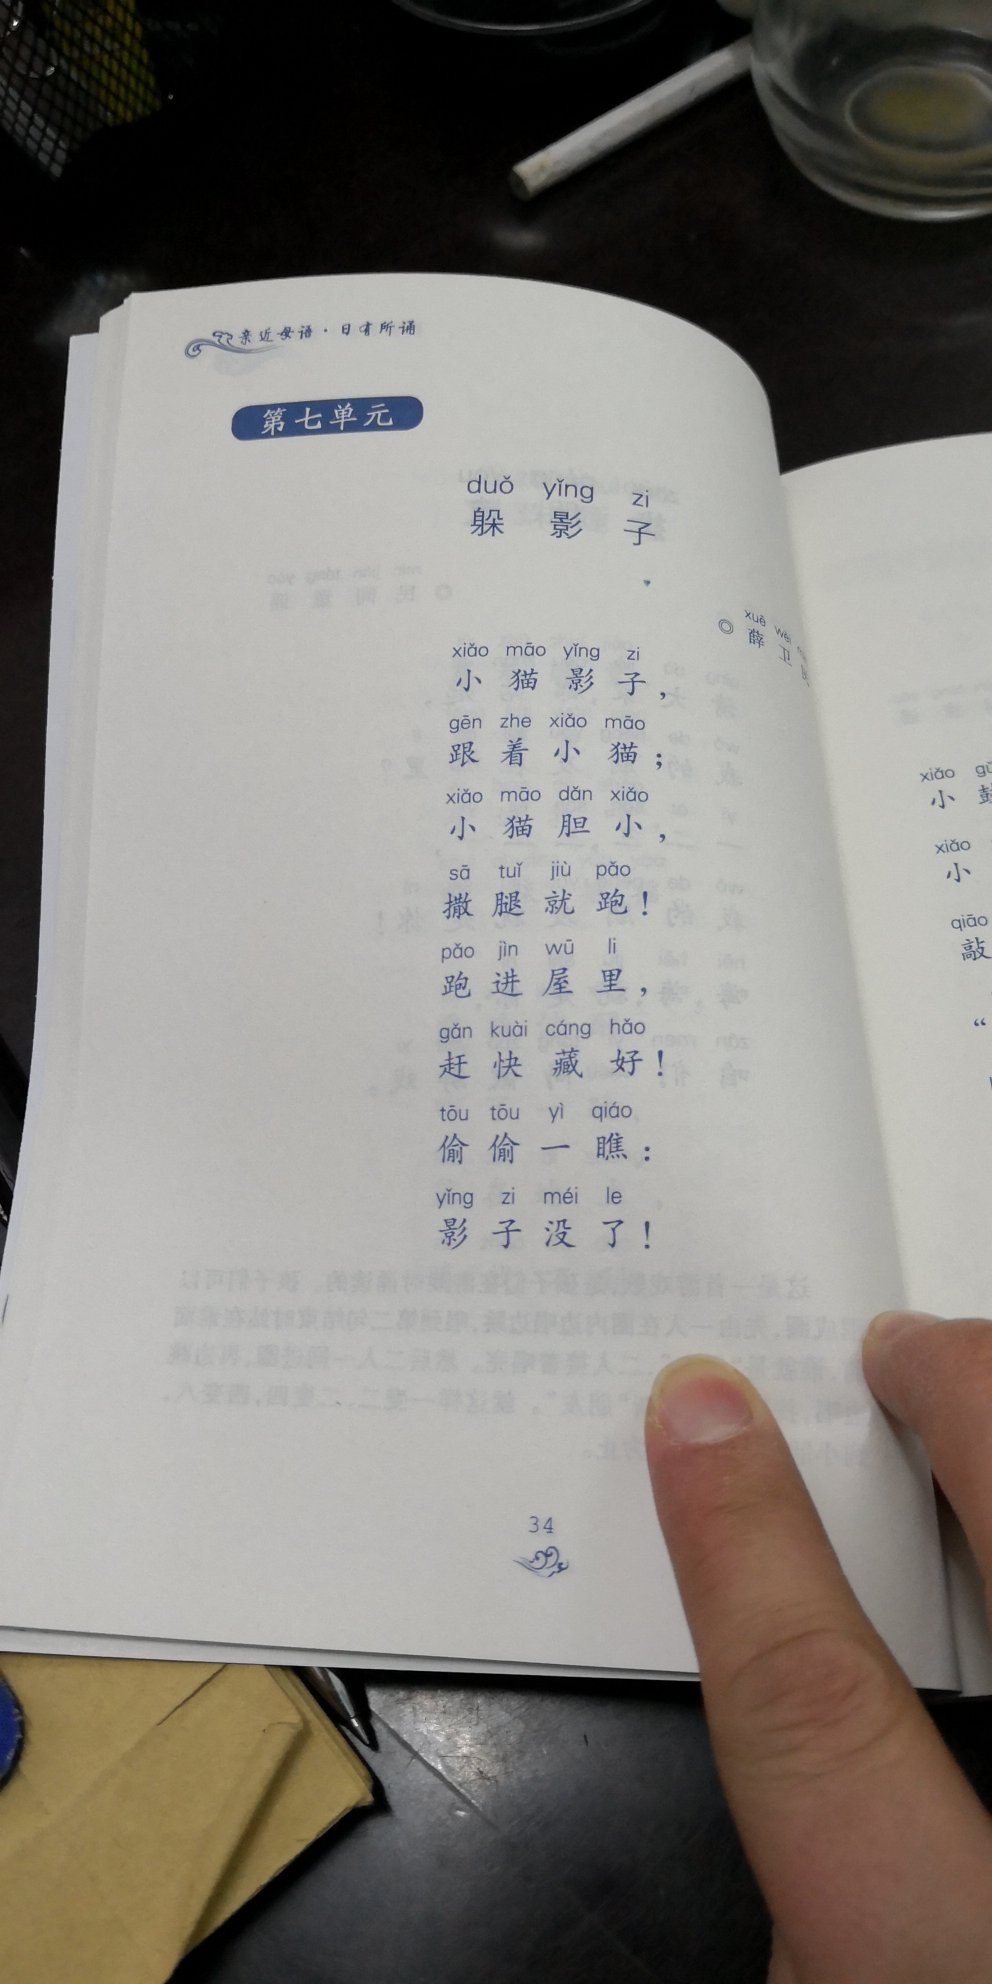 亲近母语·日有所诵
第七单元
duǒ yǐng zi
躲影子
xuē wèi
◎薛卫民
xiǎo māo yǐng zi
小猫影子，
gēn zhe xiǎo māo
跟着小猫；
xiǎo māo dǎn xiǎo
小猫胆小，
sā tuǐ jiù pǎo
撒腿就跑！
pǎo jìn wū li
跑进屋里，
gǎn kuài cáng hǎo
赶快藏好！
tōu tōu yì qiáo
偷偷一瞧：
yǐng zi méi le
影子没了！
34
xiǎo
小
xiǎo
小
qiāo
敲
“